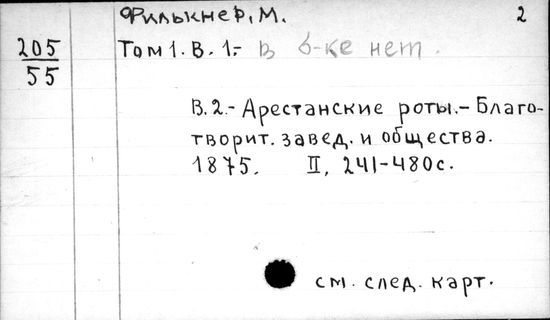 Филькнер, М. 2
205
55
Том 1. В. 1.- в б-ке нет.
В. 2.- Арестанские роты.- Благо-
творит. завед. и общества.
1875. II, 241-480 с.
см. след. карт.